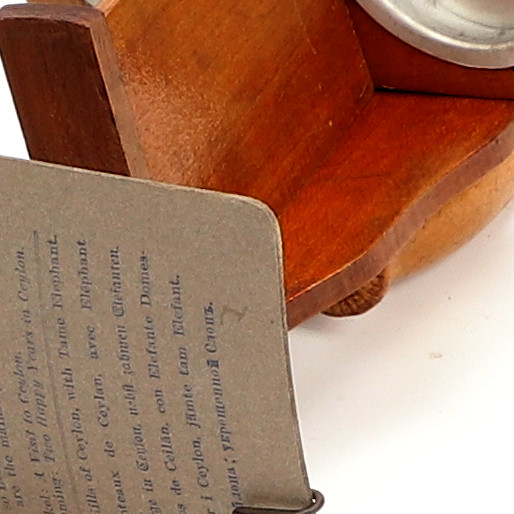 are the
A Visit to Ceylon.
Two Happy Years in Ceylon.
of Ceylon, with Tame Elephant.
de Ceylan, avec Elephant
in Ceylon, nebst zahmen Elefanten.
de Ceilán, con Elefante Domes-
i Ceylon, jämte tam Elefant.
; укрощенной Слонъ.